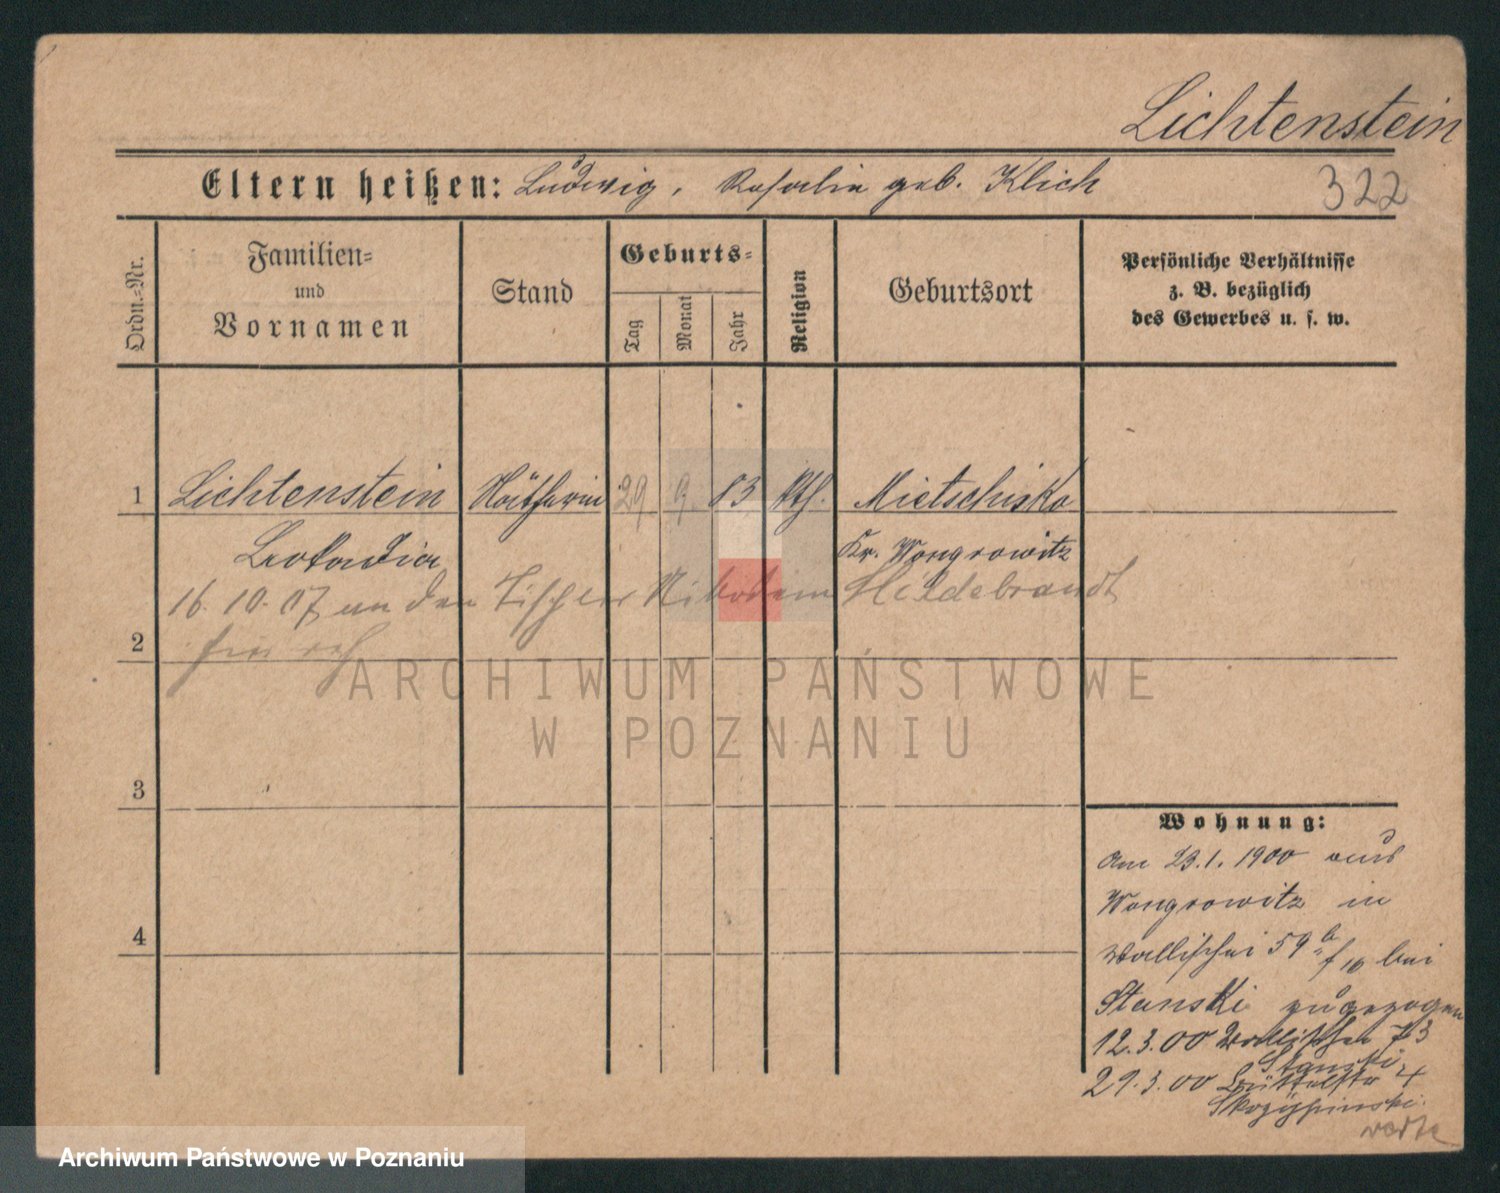 Lichtenstein
Eltern heißen: Ludwig, Rosalie geb. Klich
322
Ordn.-Nr.
Familien-
und
Vornamen
Stand
Geburts-
Tag
Monat
Jahr
Religion
Geburtsort
Persönliche Verhältnisse
z. B. bezüglich
des Gewerbes u. s. w.
1 Lichtenstein Nätherin 29 9. 83 kth. Mietschisko
Leokadia Kr. Wongrowitz
16.10.07 an den Tischler Nikodem Hildebrandt
2
ARCHIWUM PAŃSTWOWE
W POZNANIU
3
4
Wohnung:
Am 23.1.1900 aus
Wongrowitz in
Wallischei 59 b bei
Stanski zugezogen
12.3.00 Wallischei 73
Stanski
29.3.00 Büttelstr 4
Archiwum Państwowe w Poznaniu